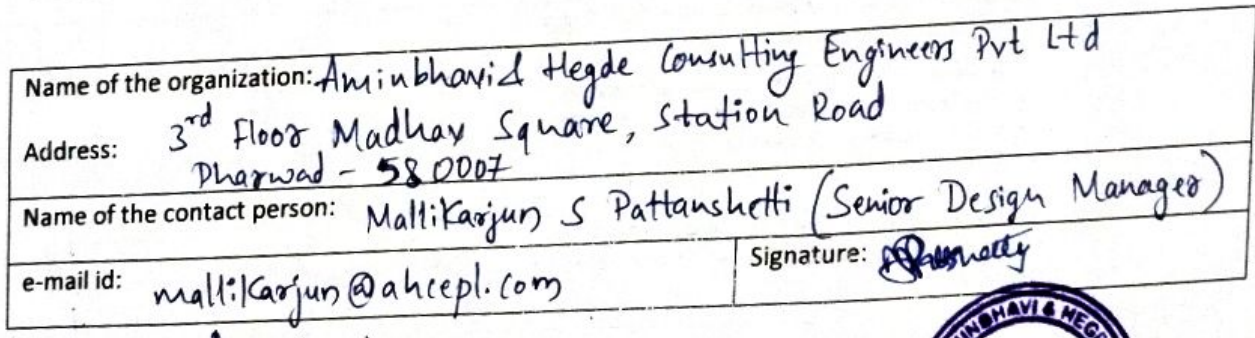 Name of the organization: Aminbhavi & Hegde Consulting Engineers Pvt Ltd
Address: 3rd Floor Madhav Square, Station Road
Dharwad - 580007
Name of the contact person: MalliKarjun S Pattanshetti (Senior Design Manager)
e-mail id: mallikarjun@ahcepl.com
Signature:
INBHAVI & HEGD